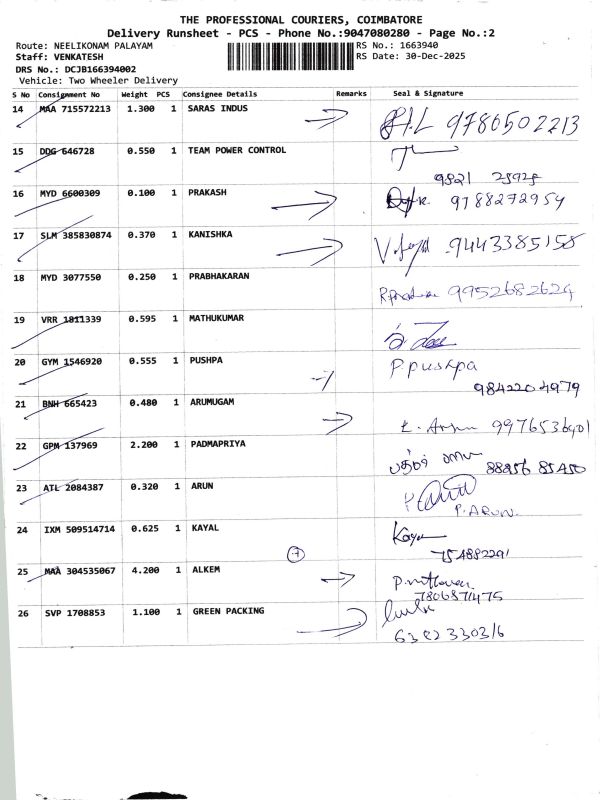 THE PROFESSIONAL COURIERS, COIMBATORE
Delivery Runsheet - PCS - Phone No.:9047080280 - Page No.:2
Route: NEELIKONAM PALAYAM
RS No.: 1663940
Staff: VENKATESH
RS Date: 30-Dec-2025
DRS No.: DCJB166394002
Vehicle: Two Wheeler Delivery
S No Consignment No Weight PCS Consignee Details Remarks Seal & Signature
14 MAA 715572213 1.300 1 SARAS INDUS 9786502213
15 DDG 646728 0.550 1 TEAM POWER CONTROL
9821
16 MYD 6600309 0.100 1 PRAKASH 9788272954
17 SLM 385830874 0.370 1 KANISHKA 9443385158
18 MYD 3077550 0.250 1 PRABHAKARAN 9952682624
19 VRR 1811339 0.595 1 MATHUKUMAR
20 GYM 1546920 0.555 1 PUSHPA P. pushpa
9842204979
21 BNH 665423 0.480 1 ARUMUGAM 9976536901
22 GPM 137969 2.200 1 PADMAPRIYA 88256 85450
23 ATL 2084387 0.320 1 ARUN
P. ARUN.
24 IXM 509514714 0.625 1 KAYAL Kayal
754882291
25 MAA 304535067 4.200 1 ALKEM
7806871475
26 SVP 1708853 1.100 1 GREEN PACKING
6382330316